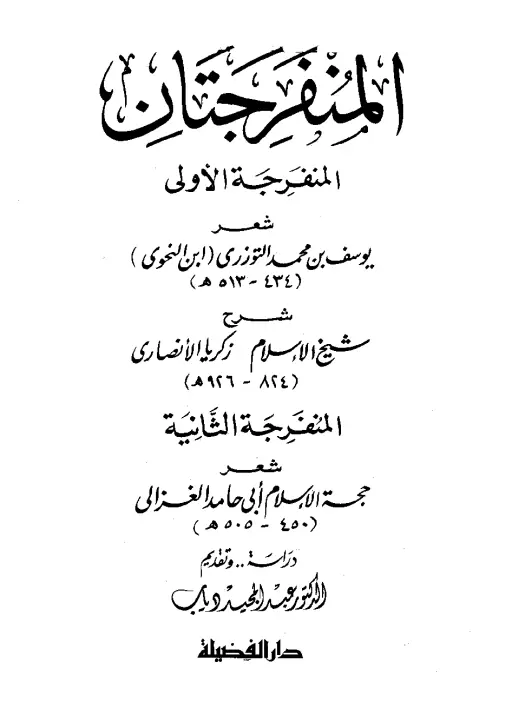 المُنفَرِجَتَانِ
المنفَرِجَة الأولى
شعر
يوسف بن محمد التوزرى (ابن النحوى)
(٤٣٤ - ٥١٣ هـ)
شرح
شيخ الإسلام زكريا الأنصارى
(٨٢٤ - ٩٢٦ هـ)
المنفَرِجَة الثَّانِيَة
شعر
حجة الإسلام أبى حامد الغزالى
(٤٥٠ - ٥٠٥ هـ)
دراسة .. وتقديم
الدكتور عبد المجيد دياب
دار الفضيلة